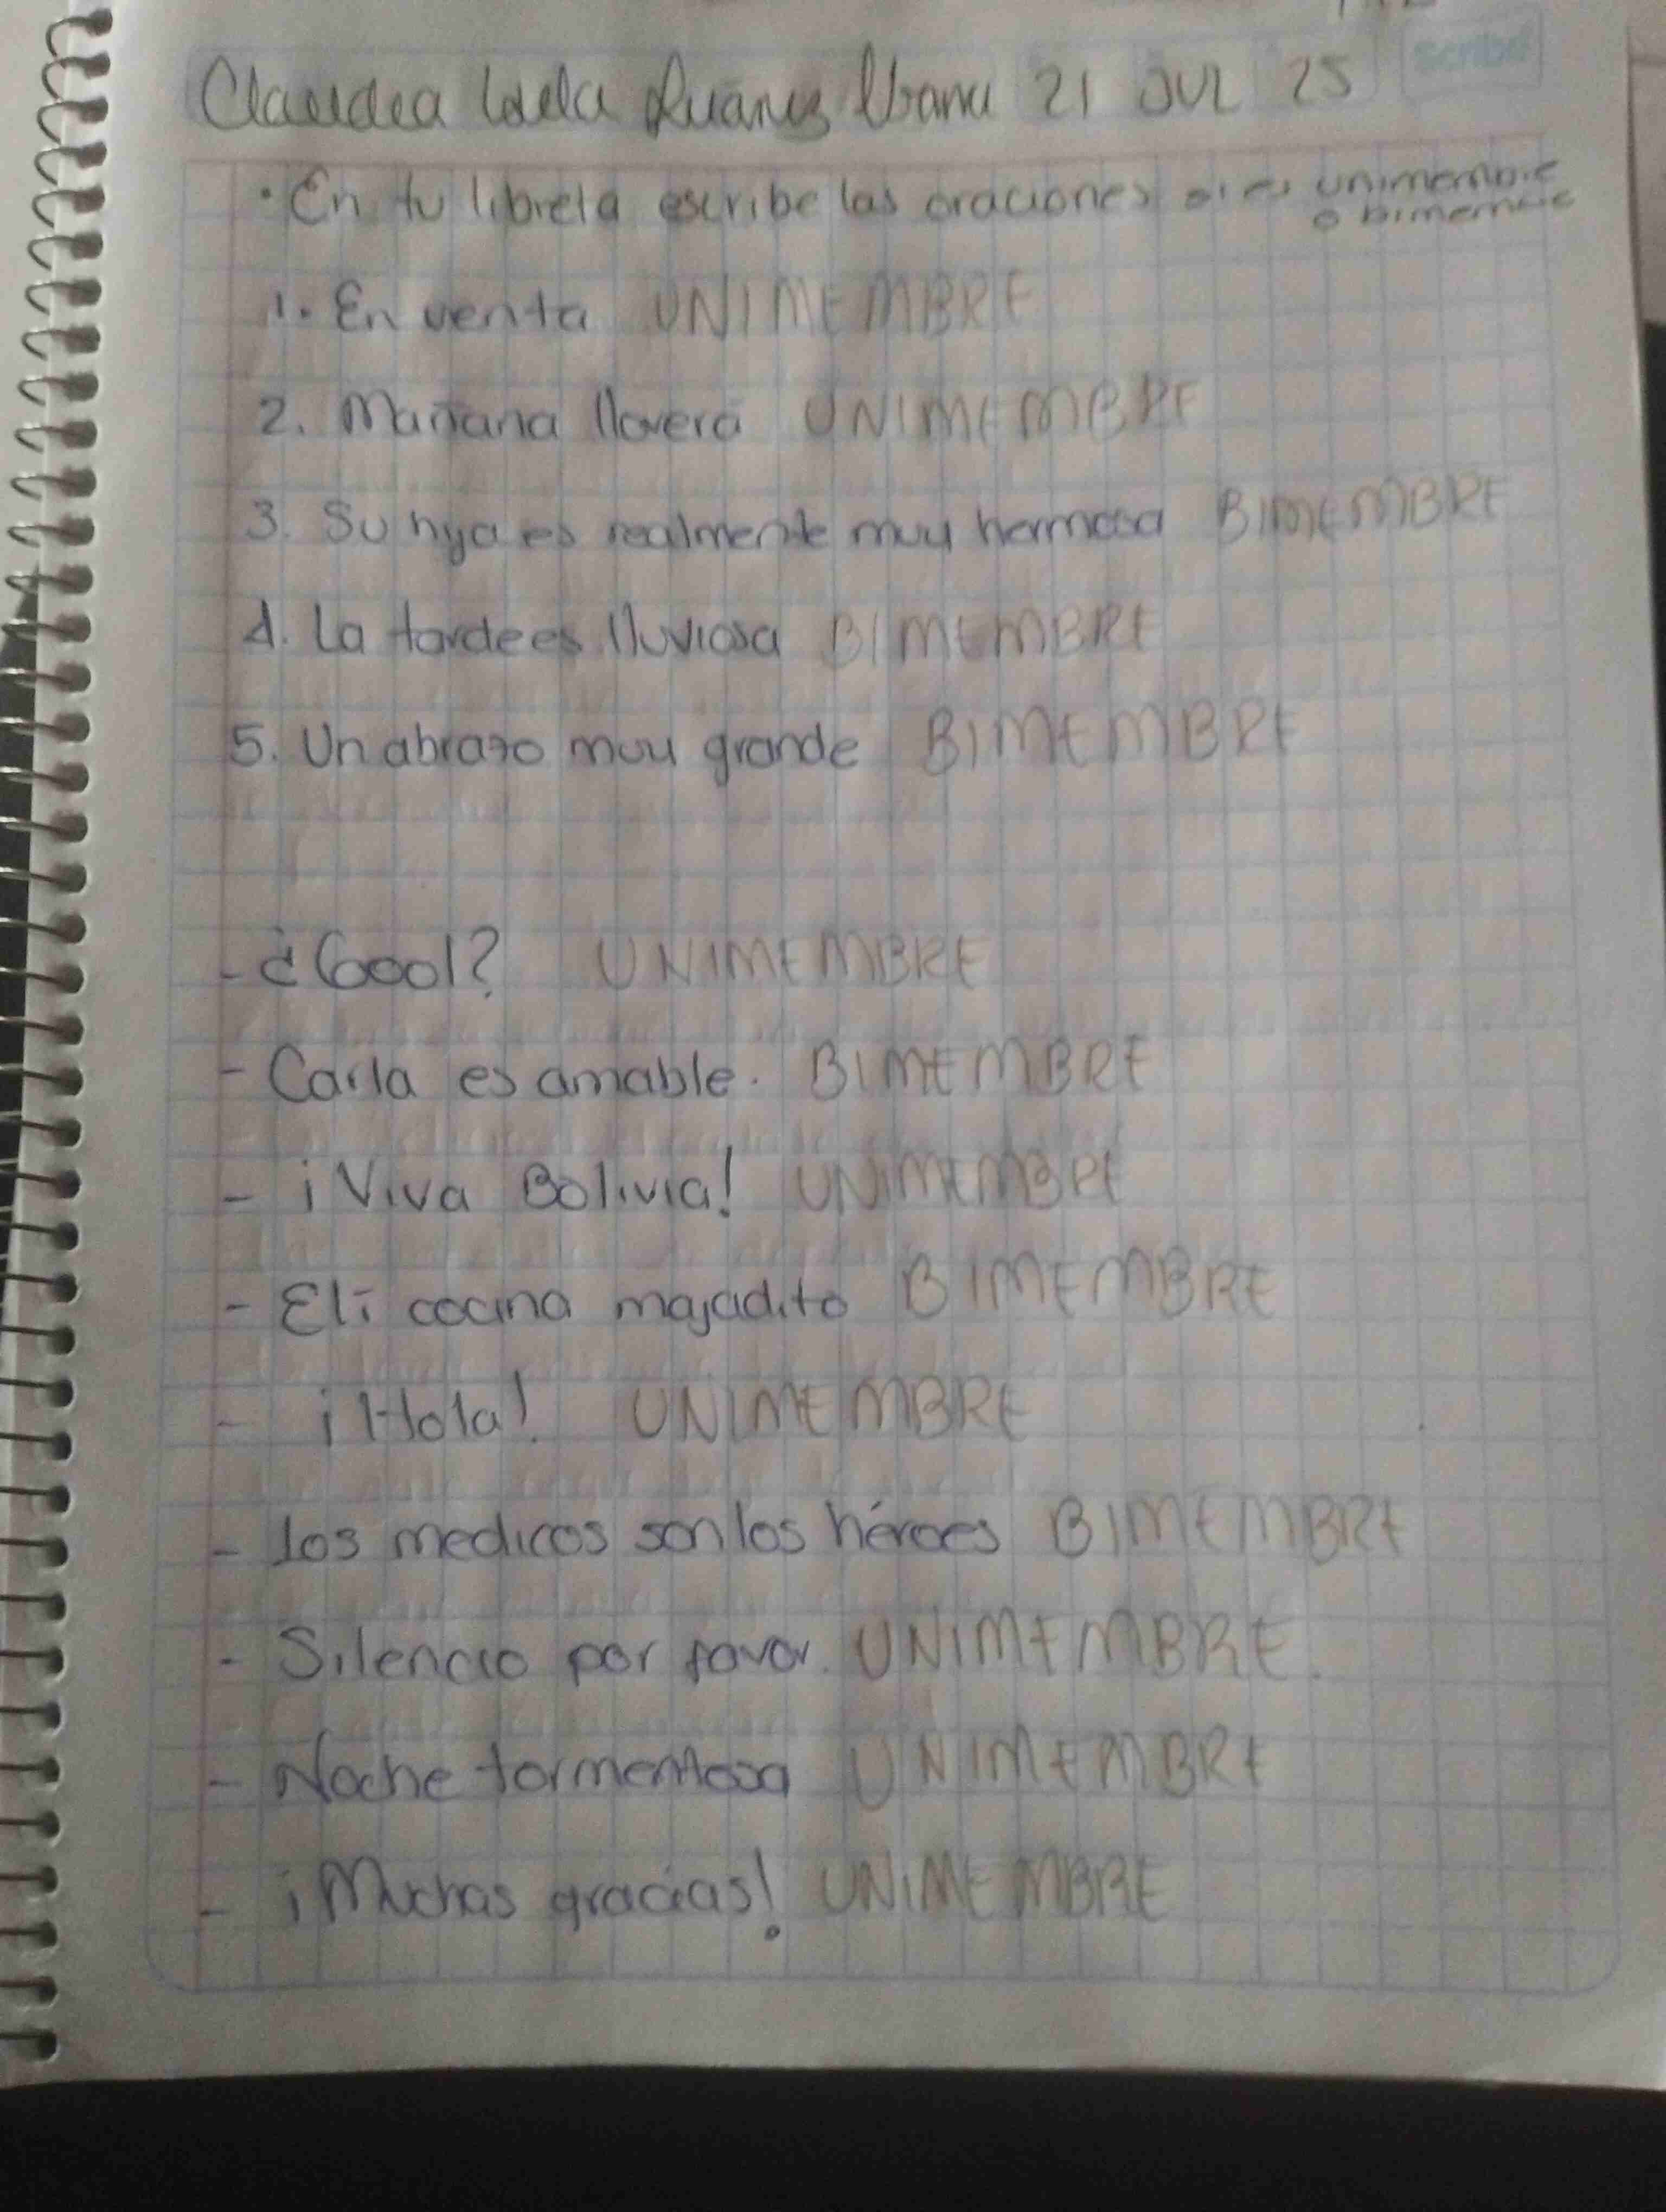 Scribe
Claudia 21 JUL 25
· En tu libreta escribe las oraciones si es unimembre
o bimembre
1. En venta UNIMEMBRE
2. Mañana lloverá UNIMEMBRE
3. Su hija es realmente muy hermosa BIMEMBRE
4. La tarde es lluviosa BIMEMBRE
5. Un abrazo muy grande BIMEMBRE
- ¿Gool? UNIMEMBRE
- Carla es amable. BIMEMBRE
- ¡Viva Bolivia! UNIMEMBRE
- Eli cocina majadito BIMEMBRE
- ¡Hola! UNIMEMBRE
- Los medicos son los héroes BIMEMBRE
- Silencio por favor. UNIMEMBRE.
- Noche tormentosa UNIMEMBRE
- ¡Muchas gracias! UNIMEMBRE